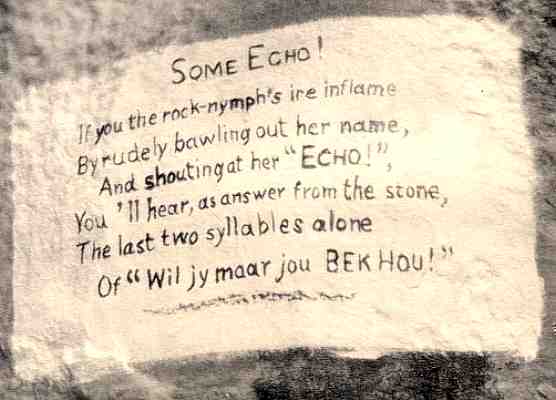 SOME ECHO!
If you the rock-nymph's ire inflame
By rudely bawling out her name,
And shouting at her "ECHO!",
You'll hear, as answer from the stone,
The last two syllables alone
Of "Wil jy maar jou BEK HOU!"